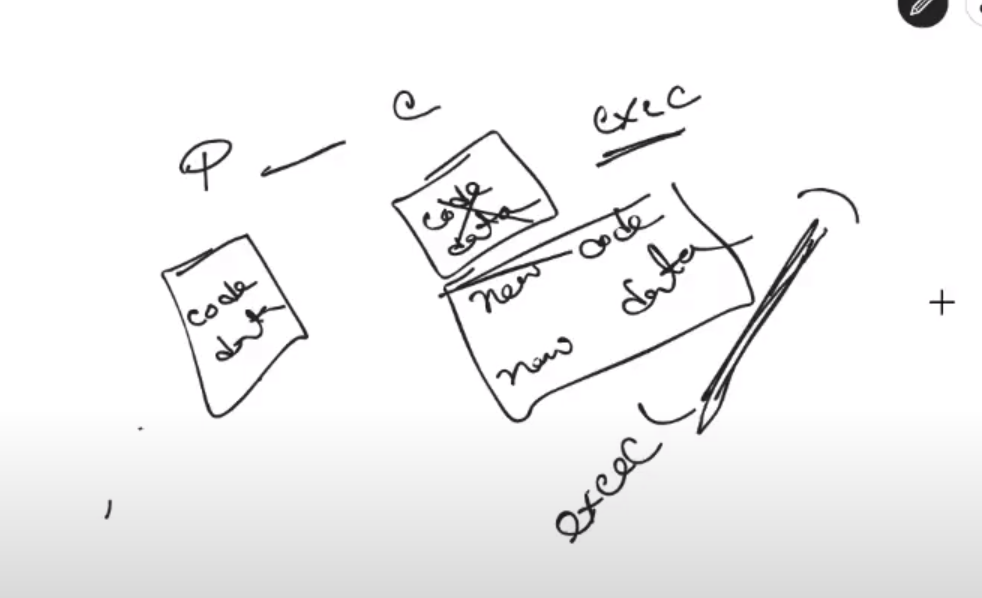 P
C
exec
code
data
code
data
new code
new data
exec